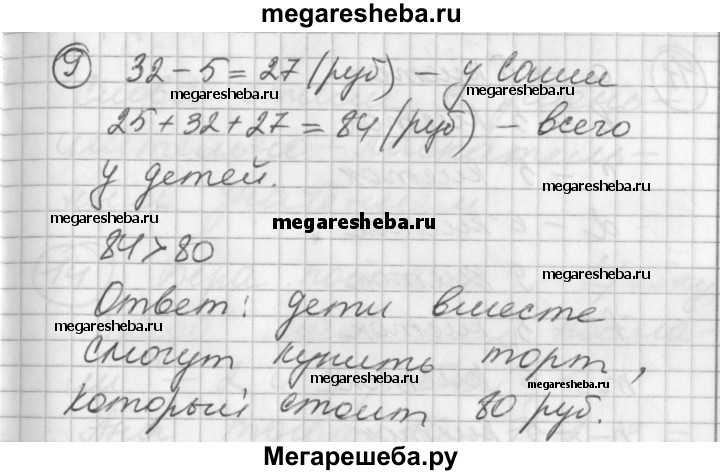 megaresheba.ru
9 32 - 5 = 27 (руб) - у Саши
megaresheba.ru megaresheba.ru
25 + 32 + 27 = 84 (руб) - всего
у детей.
megaresheba.ru megaresheba.ru megaresheba.ru
84 > 80
Ответ: дети вместе
megaresheba.ru megaresheba.ru
смогут купить торт,
megaresheba.ru megaresheba.ru
который стоит 80 руб.
Мегарешеба.ру